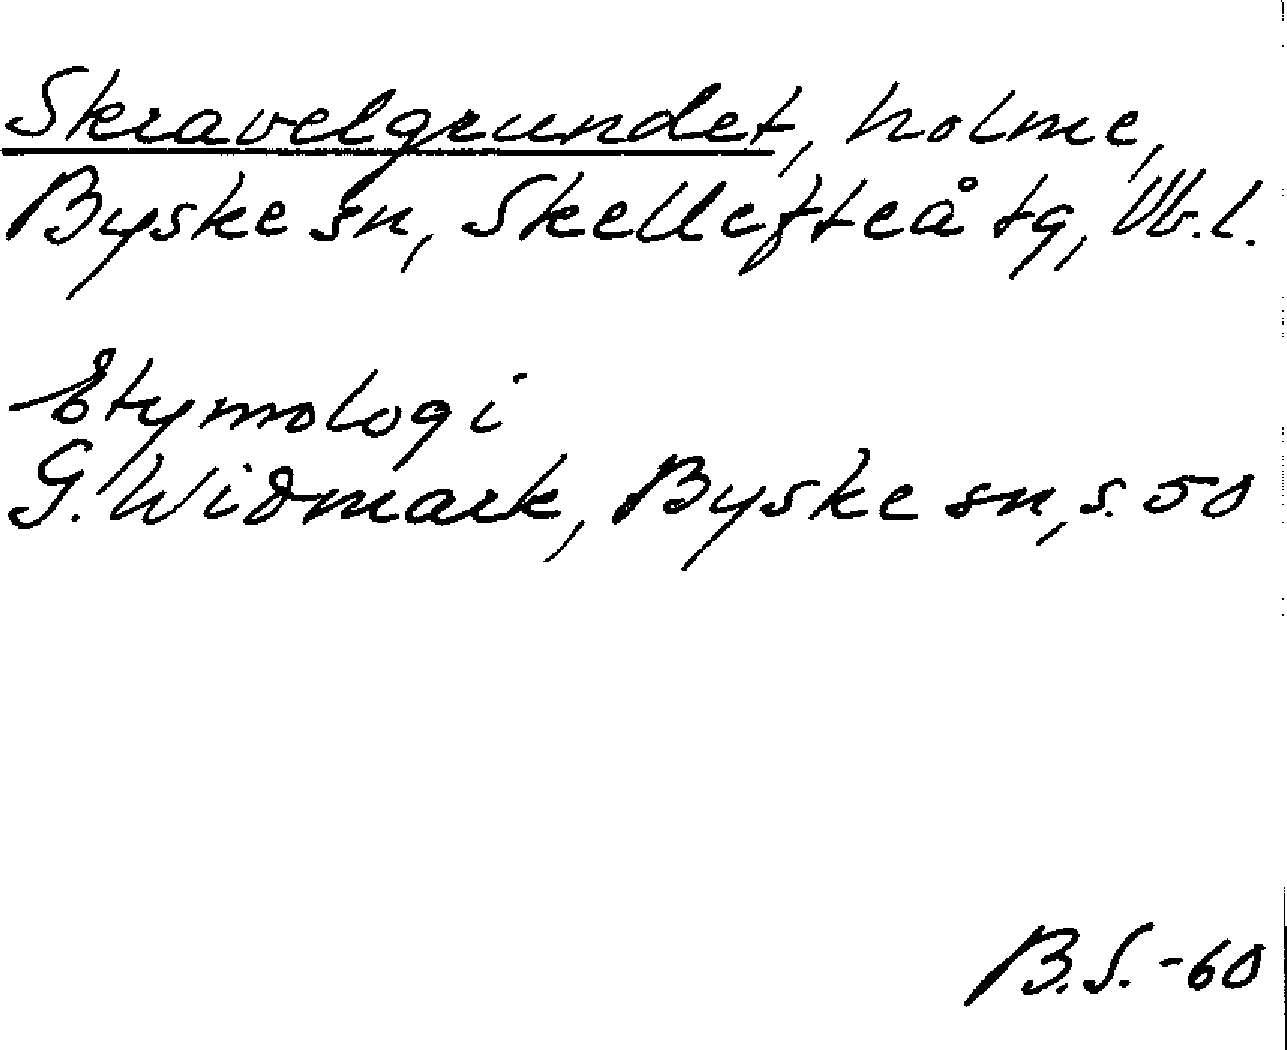 Skravelgrundet, holme,
Byske sn, Skellefteå tg, Vb.l.
Etymologi
G. Widmark, Byske sn, s. 50
B.S. -60